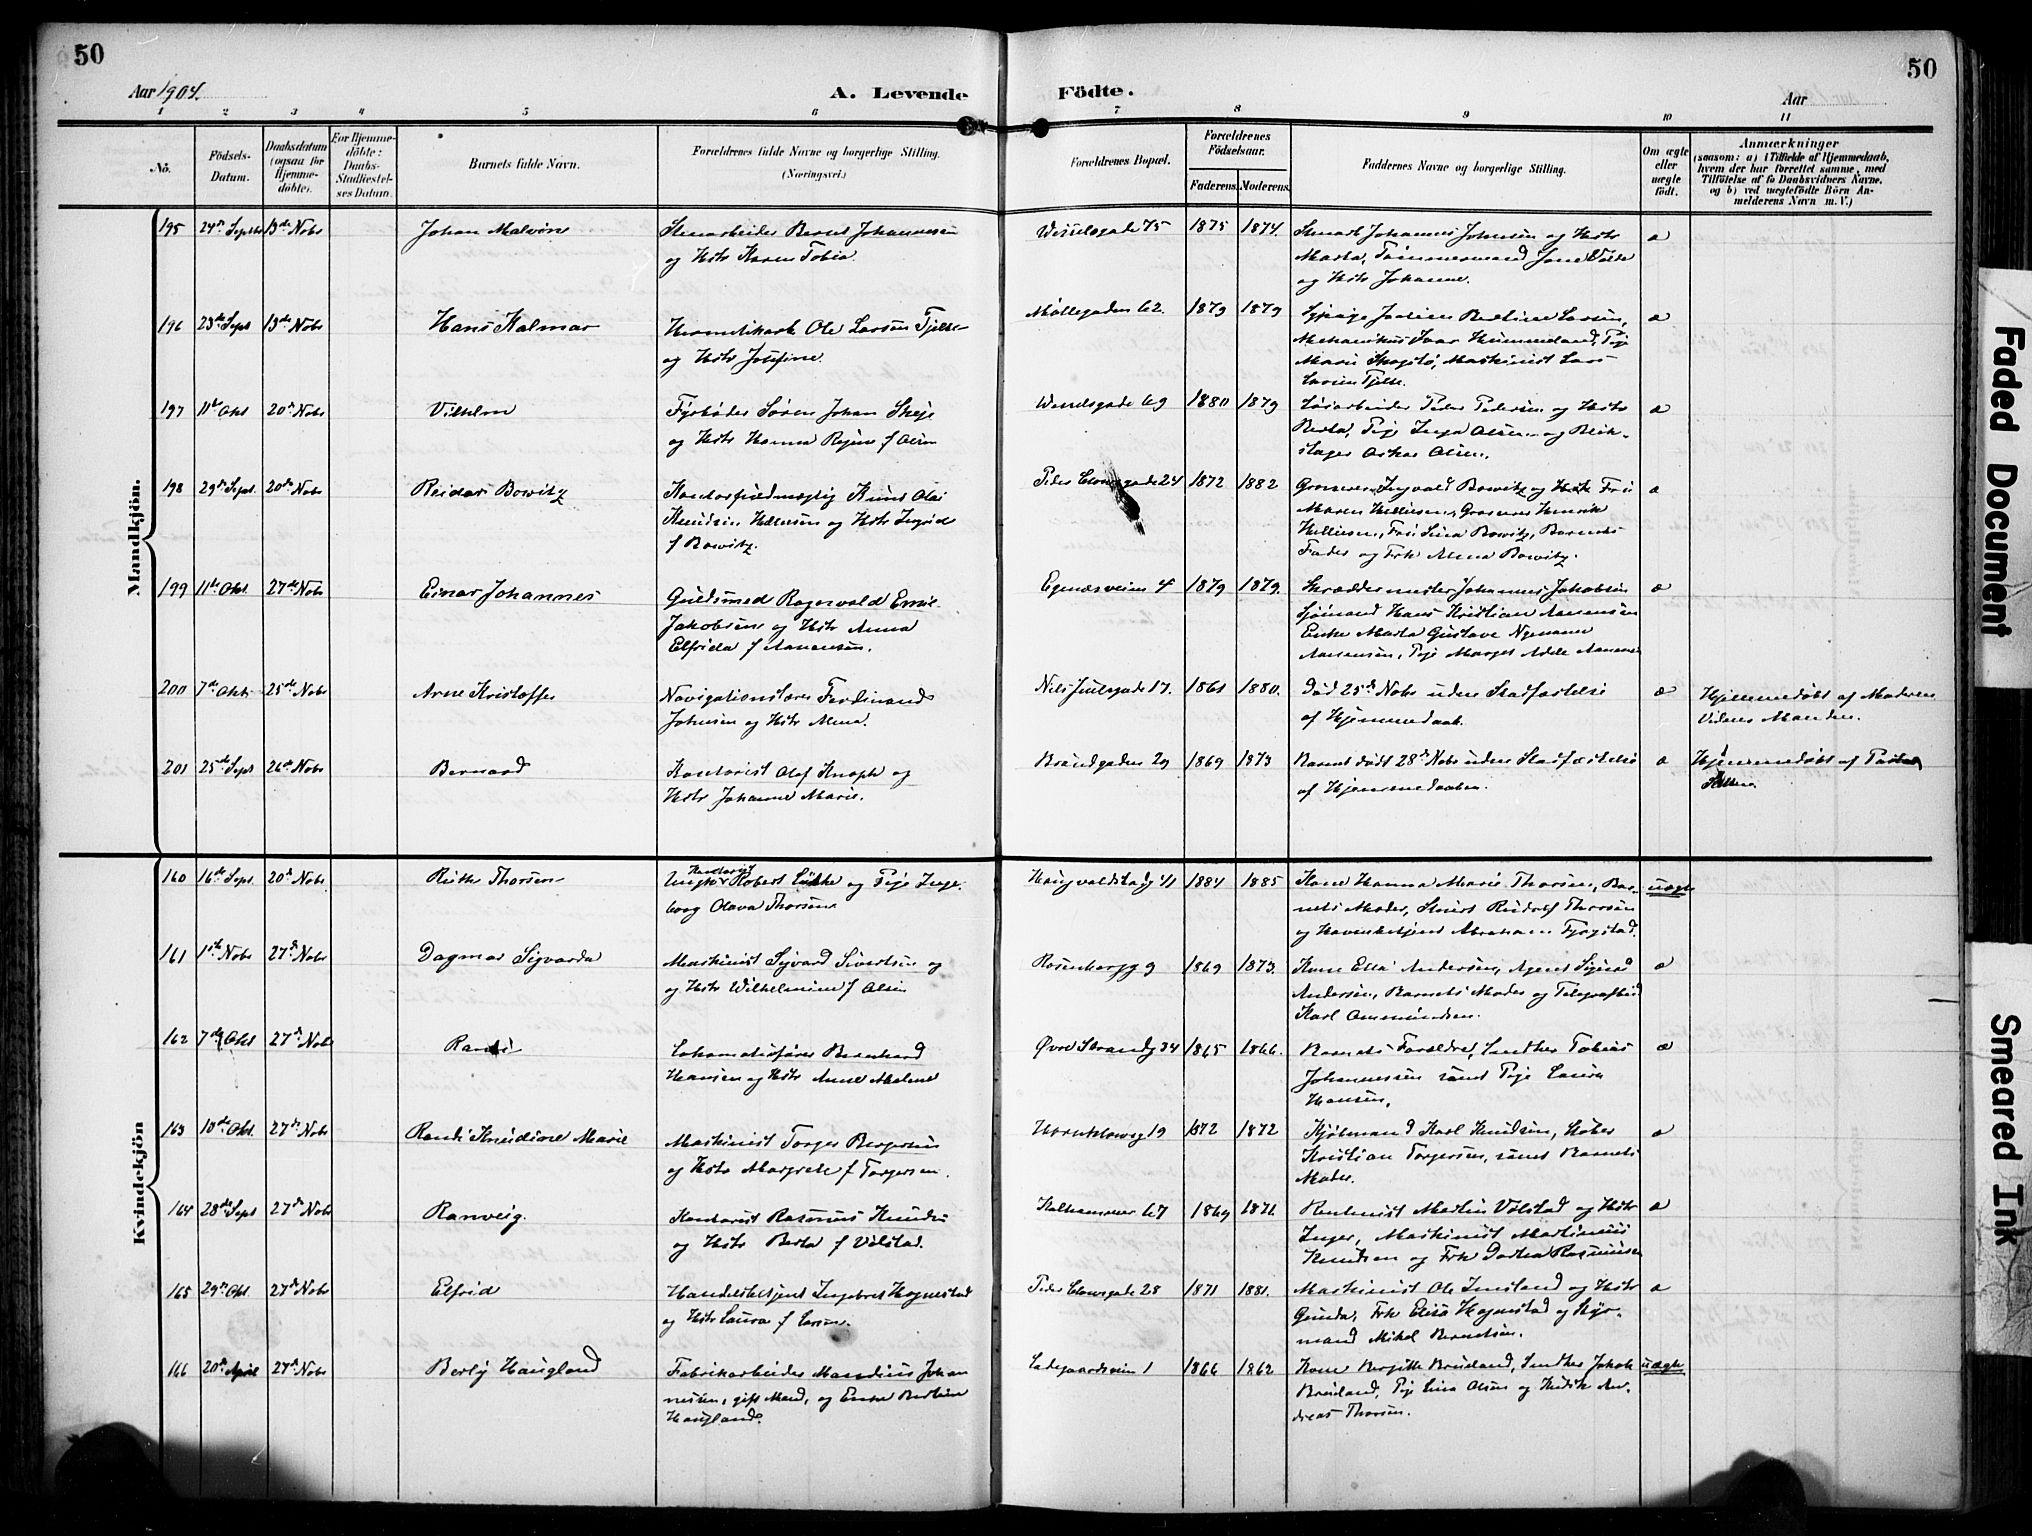 50
50
Aar 1904.
A. Levende
Födte.
Aar
1 2 3 4 5 6 7 8 9 10 11
No.
Födsels-
Datum.
Daabsdatum
(ogsaa for
Hjemme-
döbte).
For Hjemme-
döbte:
Daabs-
Stadfæstel-
ses Datum.
Barnets fulde Navn.
Forældrenes fulde Navne og borgerlige Stilling.
(Næringsvei.)
Forældrenes Bopæl.
Forældrenes
Födselsaar.
Faderens. Moderens.
Faddernes Navne og borgerlige Stilling.
Om ægte
eller
uægte
födt.
Anmærkninger
(saasom: a) i Tilfælde af Hjemmedaab,
hvem der har forrettet samme, med
Tilföielse af to Daabsvidners Navne,
og b) ved uægtefödte Börn An-
melderens Navn m. V.)
Mandkjön.
195 24de Septbr 13de Nobr Johan Malvin
og Hstr Karen Tobia.
Wesselsgade 75 1875 1874.
Johannes Johnsen og Hstr
Marta, Tømmermand
og Hstr Johanne.
196 23de Sept 13de Nobr Hans Halmar
Ole Larsen Tjelse
og Hstr Josefine.
Møllegaden 62. 1879 1879
Bertine Larsen,
Mekanikus Ivar Hummeland, Pige
Marie Skogstø, Maskinist Lars
Larsen Tjelse.
197 11te Okt 20de Nobr Vilhelm
Fyrbøder Søren Johan Skeje
og Hstr Hanna Regine f Olsen
Wesselsgade 69 1880 1879
Peder Pedersen og Hstr
Berta, Pige Inga Olsen og Blik-
slager Oskar Olsen.
198 29de Sept. 20de Nobr Reidar Bowitz
Kontorfuldmægtig Knut Olai
Knudsen og Hstr Ingrid
f Bowitz.
Peder Clowsgade 24 1872 1882
Grosserer Ingvald Bowitz og Fru
Maren Helliesen, Grosserer Henrik
Helliesen, Fru Lina Bowitz, Barnets
Fader og Frk Anna Bowitz.
199 11te Okt. 27de Nobr Einar Johannes
Guldsmed Ragnvald Emil
Jakobsen og Hstr Anna
Elfrida f Aanensen.
Egenæsveien 4 1879 1879. æ
Skræddermester Johannes Jakobsen
Sjømand Hans Kristian Aanensen
Enke Marta Gustave
Aanensen, Pige Marget Adele Aanensen
200 7de Oktr 25de Nobr Arne Kristoffer
Navigationslærer Ferdinand
Johnsen og Hstr Alma.
Niels Juelsgade 17. 1861 1880. æ
Død 25de Nobr uden Stadfæstelse
af Hjemmedaab.
Hjemmedøbt af Moderen
201 25de Sept 26de Nobr Bernard
Kontorist Olaf Knoph og
Hstr Johanne Marie.
Brandgaden 29 1869 1873
Barnet dødt 28de Nobr uden Stadfæstelse
af Hjemmedaaben.
Hjemmedøbt af
Kvindekjön
160 16de Sept. 20de Nobr Ruth Thorsen
Ungkar Robert og Pige Inge-
borg Olava Thorsen.
41 1884 1885
Kone Hanna Marie Thorsen, Bar-
nets Moder, Rudolf Thorsen
og Abraham Fjogstad.
uægte
161 1ste Nobr 27de Nobr Dagmar Sigvarda
Maskinist Sigvard Sivertsen og
og Hstr Wilhelmine f Olsen
Rosenbergg 9 1869 1873.
Kone Ella Andersen, Agent Sigurd
Andersen, Barnets Moder og Telegrafbud
Karl Ommundsen.
162 7de Okt 27de Nobr Randi
Lokomotivfører Bernhard
Hansen og Hstr Anne Malene
Øvre Strandg 34 1865 1866. æ
Barnets Forældre, Snedker Tobias
Johannessen samt Pige Laura
Hansen.
163 10de Okt. 27de Nobr Randi Knudine Marie
Maskinist Torger Bergersen
og Hstr Margrete f Torgersen.
Harekloweg 19 1872 1872
Kjøbmand Karl Knudsen,
Kristian Torgersen, samt Barnets
Moder.
164 28de Sept 27de Nobr Ranveig.
Kontorist Rasmus Knudsen
og Hstr Berta f Vølstad.
Kalhammer 67 1869 1871.
Martin Vølstad og Hstr
Inger, Maskinist Martinius
Knudsen og Frk Dortea Rasmussen
165 29de Okt. 27de Nobr Elfrid
Handelsbetjent Ingebret Hognestad
og Hstr Laura f Larsen.
Peder Clowsgade 28 1871 1881.
Maskinist Ole Imsland og Hstr
Gunda, Frk Elisa Hognestad og Styr-
mand Mikal Berentsen.
166 20de April 27de Nobr Berly Haugland
Fabrikarbeider Mandius Johan
nessen, gift Mand, og Enke Bertine
Haugland.
Ladegaardsveien 1 1866 1862
Kone Bergitte Bruland, Snedker Jakob
Bruland, Pige Lina Olsen og An-
dreas Thorsen.
uægte
Faded Document
Smeared Ink